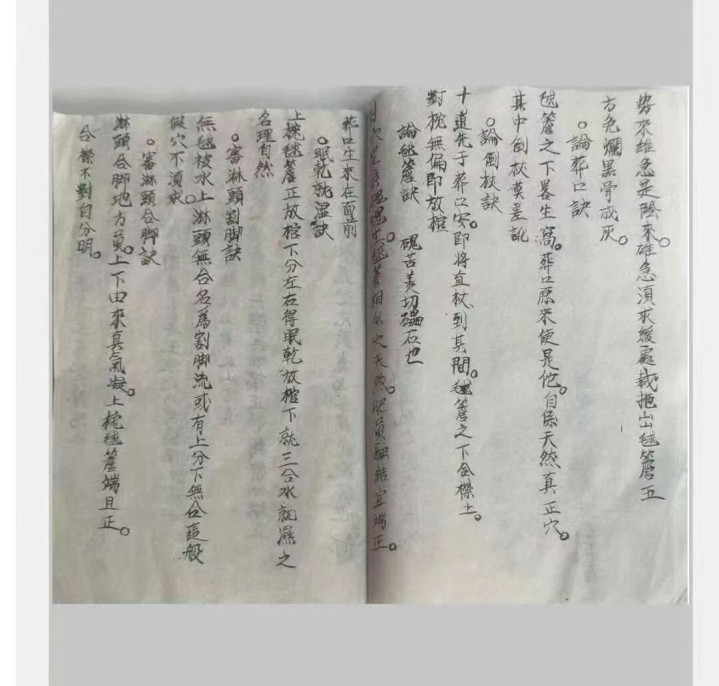 勢來雄急是陰來。雄急須求緩處裁拖出毬簷五
方免爛黑骨成灰。
○論葬口訣
毬簷之下畧生窩。葬口原來便是他。自係天然真正穴。
其中倒杖莫差訛
○論倒杖訣
十道先于葬口安。即將直杖到其間。毬簷之下金櫟土。
對枕無偏即放棺
論毬簷訣 磈苦美切磊石也
天然。肥員融結宜端正。
葬口生來在面前
○眠乾就湿訣
上枕毬簷正放棺下分左右得眠乾放棺下就三合水就濕之
名理自然
○審淋頭割脚訣
無毬披水上淋頭無合名爲割脚流或有上分下無合這般
假穴不須求。
○審淋頭合脚訣
淋頭合脚地方員。上下由來真氣凝上枕毬簷端且正。
合襟不對自分明。